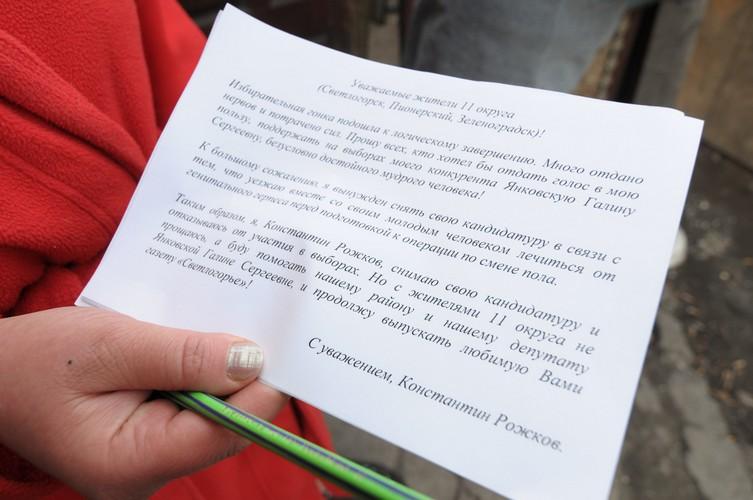 Уважаемые жители 11 округа
(Светлогорск, Пионерский, Зеленоградск)!
Избирательная гонка подошла к логическому завершению. Много отдано
нервов и потрачено сил. Прошу всех, кто хотел бы отдать голос в мою
пользу, поддержать на выборах моего конкурента Янковскую Галину
Сергеевну, безусловно достойного мудрого человека!
К большому сожалению, я вынужден снять свою кандидатуру в связи с
тем, что уезжаю вместе со своим молодым человеком лечиться от
генитального герпеса перед подготовкой к операции по смене пола.
Таким образом, я, Константин Рожков, снимаю свою кандидатуру и
отказываюсь от участия в выборах. Но с жителями 11 округа не
прощаюсь, а буду помогать нашему району и нашему депутату
Янковской Галине Сергеевне, и продолжу выпускать любимую Вами
газету «Светлогорье»!
С уважением, Константин Рожков.